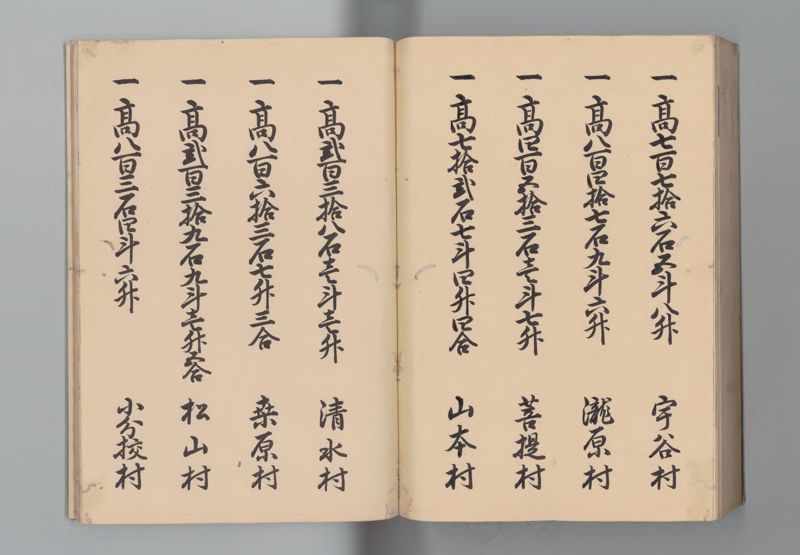 一高七百七拾六石五斗八升 宇谷村
一高八百四拾七石九斗六升 瀧原村
一高四百五拾三石壱斗七升 菩提村
一高七拾弐石七斗四升四合 山本村
一高弐百三拾八石壱斗壱升 清水村
一高八百六拾三石七升三合 桒原村
一高弐百三拾九石九斗壱升六合 松山村
一高八百三石四斗六升 小分校村